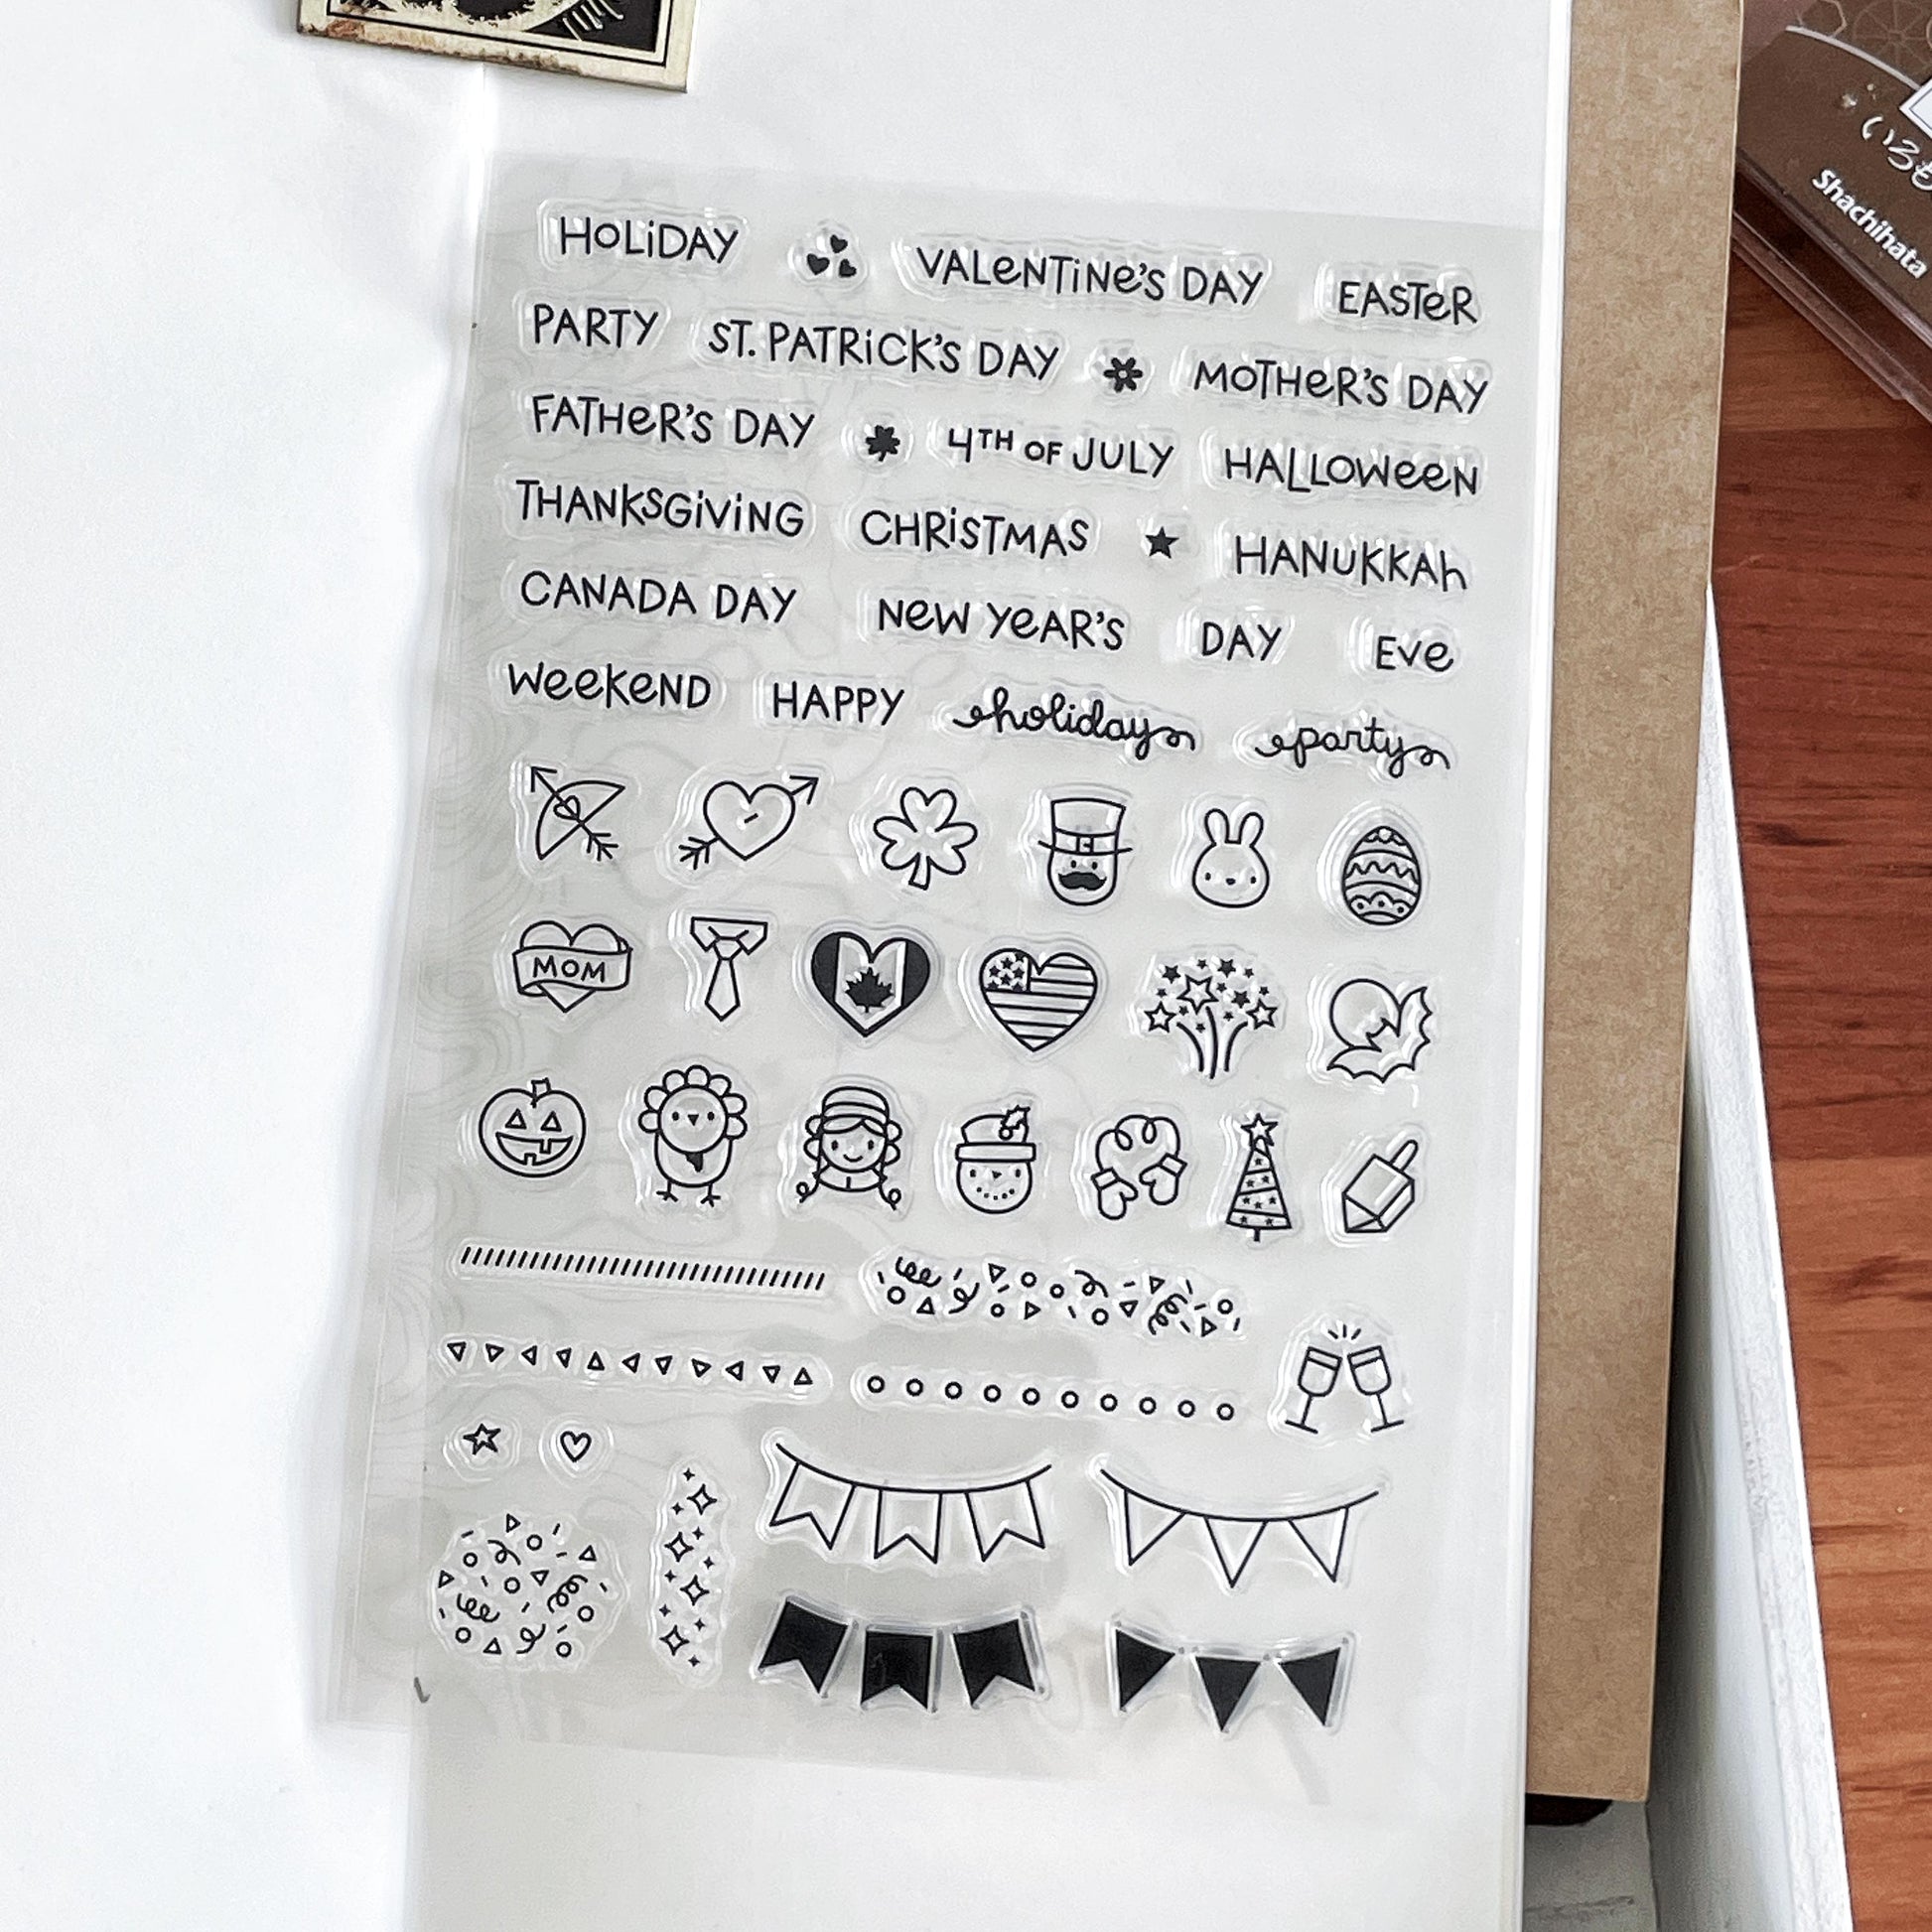 HOLiDAY VALeNTiNe'S DAY EASTeR
PARTY ST. PATRiCK'S DAY MOTHeR'S DAY
FATHeR'S DAY 4TH OF JULY HALLOWeeN
THANKSGiViNG CHRiSTMAS HANUKKAh
CANADA DAY NeW YeAR'S DAY EVe
WeeKeND HAPPY holiday party
MOM
いろも
Shachihata